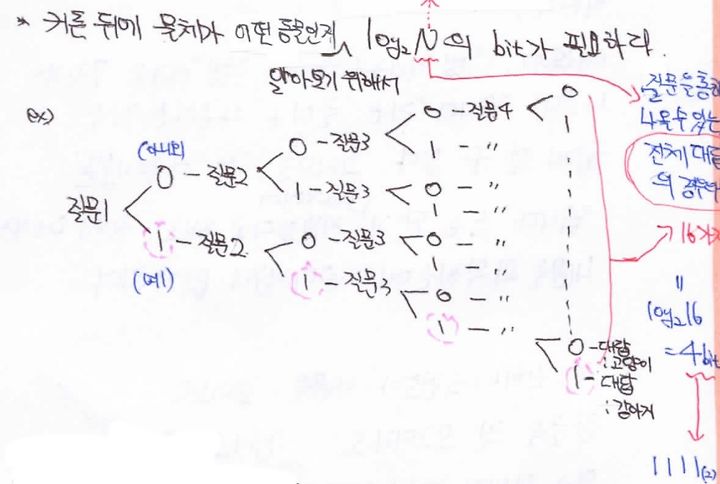 * 커튼 뒤에 물체가 어떤 동물인지 log₂N의 bit가 필요하다.
알아보기 위해서
ex)
질문을 통해
나올 수 있는
전체 대답
의 경우
(아니오)
0 - 질문2
0 - 질문3
0 - 질문4
0
1
1 - 〃
1 - 질문3
0 - 〃
1 - 〃
질문1
1 - 질문2
(예)
0 - 질문3
0 - 〃
1 - 〃
1 - 질문3
0 - 〃
1 - 〃
16가지
〃
log₂16
= 4bit
0 - 대답
: 고양이
1 - 대답
: 강아지
1111(2)